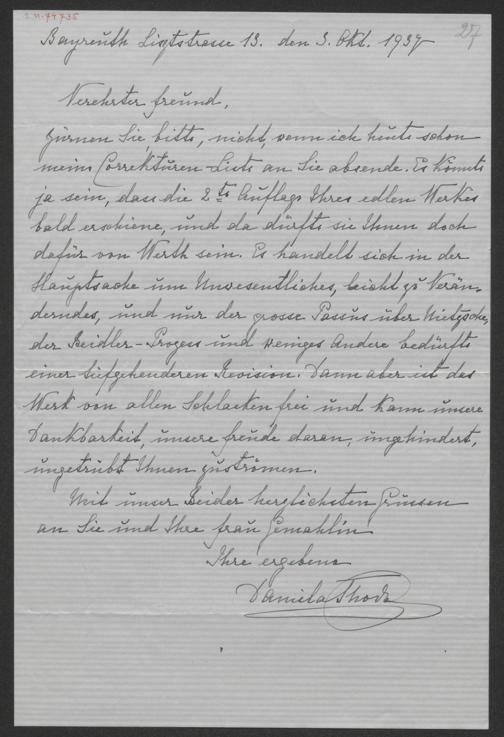 Bayreuth Lisztstrasse 13. den 3. Okt. 1937
27
Verehrter Freund,
zürnen Sie, bitte, nicht, wenn ich heute schon
meine Correkturen-Liste an Sie absende. Es könnte
ja sein, dass die 2te Auflage Ihres edlen Werkes
bald erschiene, und da dürfte sie Ihnen doch
dafür von Werth sein. Es handelt sich in der
Hauptsache um Unwesentliches, leicht zu Verän-
derndes, und nur der grosse Passus über Nietzsche,
der Beidler-Prozess und weniges Andere bedürfte
einer tiefgehenderen Revision. Dann aber ist das
Werk von allen Schlacken frei und kann unsere
Dankbarkeit, unsere Freude daran, ungehindert,
ungetrübt Ihnen zuströmen.
Mit unser Beider herzlichsten Grüssen
an Sie und Ihre Frau Gemahlin
Ihre ergebene
Daniela Thode